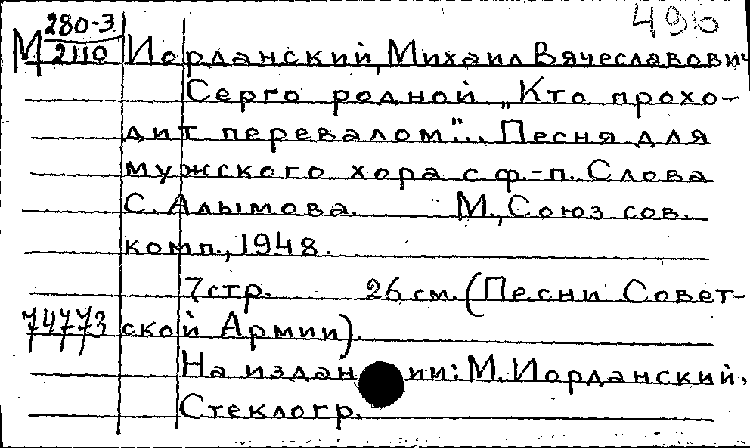 280-3
М 2110
496
Иорданский, Михаил Вячеславович
Серго родной "Кто прохо-
дит перевалом"... Песня для
мужского хора с ф.-п. Слова
С. Алымова. М., Союз сов.
комп., 1948.
7 стр. 26 см. (Песни Совет-
74773 ской Армии).
На издан ии: М. Иорданский.
Стеклогр.